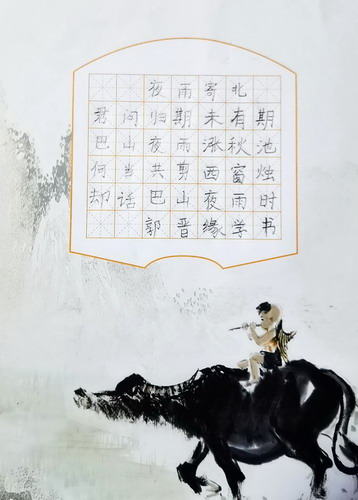 夜雨寄北
君问归期未有期
巴山夜雨涨秋池
何当共剪西窗烛
却话巴山夜雨时
郭晋缘学书